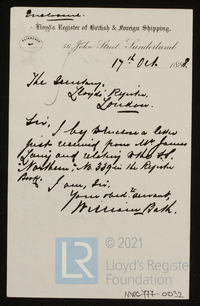 Enclosure.
Lloyd's Register of British & Foreign Shipping,
36 John Street, Sunderland
17th Oct. 188
The Secretary,
Lloyd's Register,
London.
Sir,
I beg to enclose a letter
just received from Mr James
Laing and relating to the s.s.
"Northern", No 339 in the Register
Book.
I am, Sir,
Your obedt servant
William Bath.
© 2021
LR
Lloyd's Register
Foundation
0032